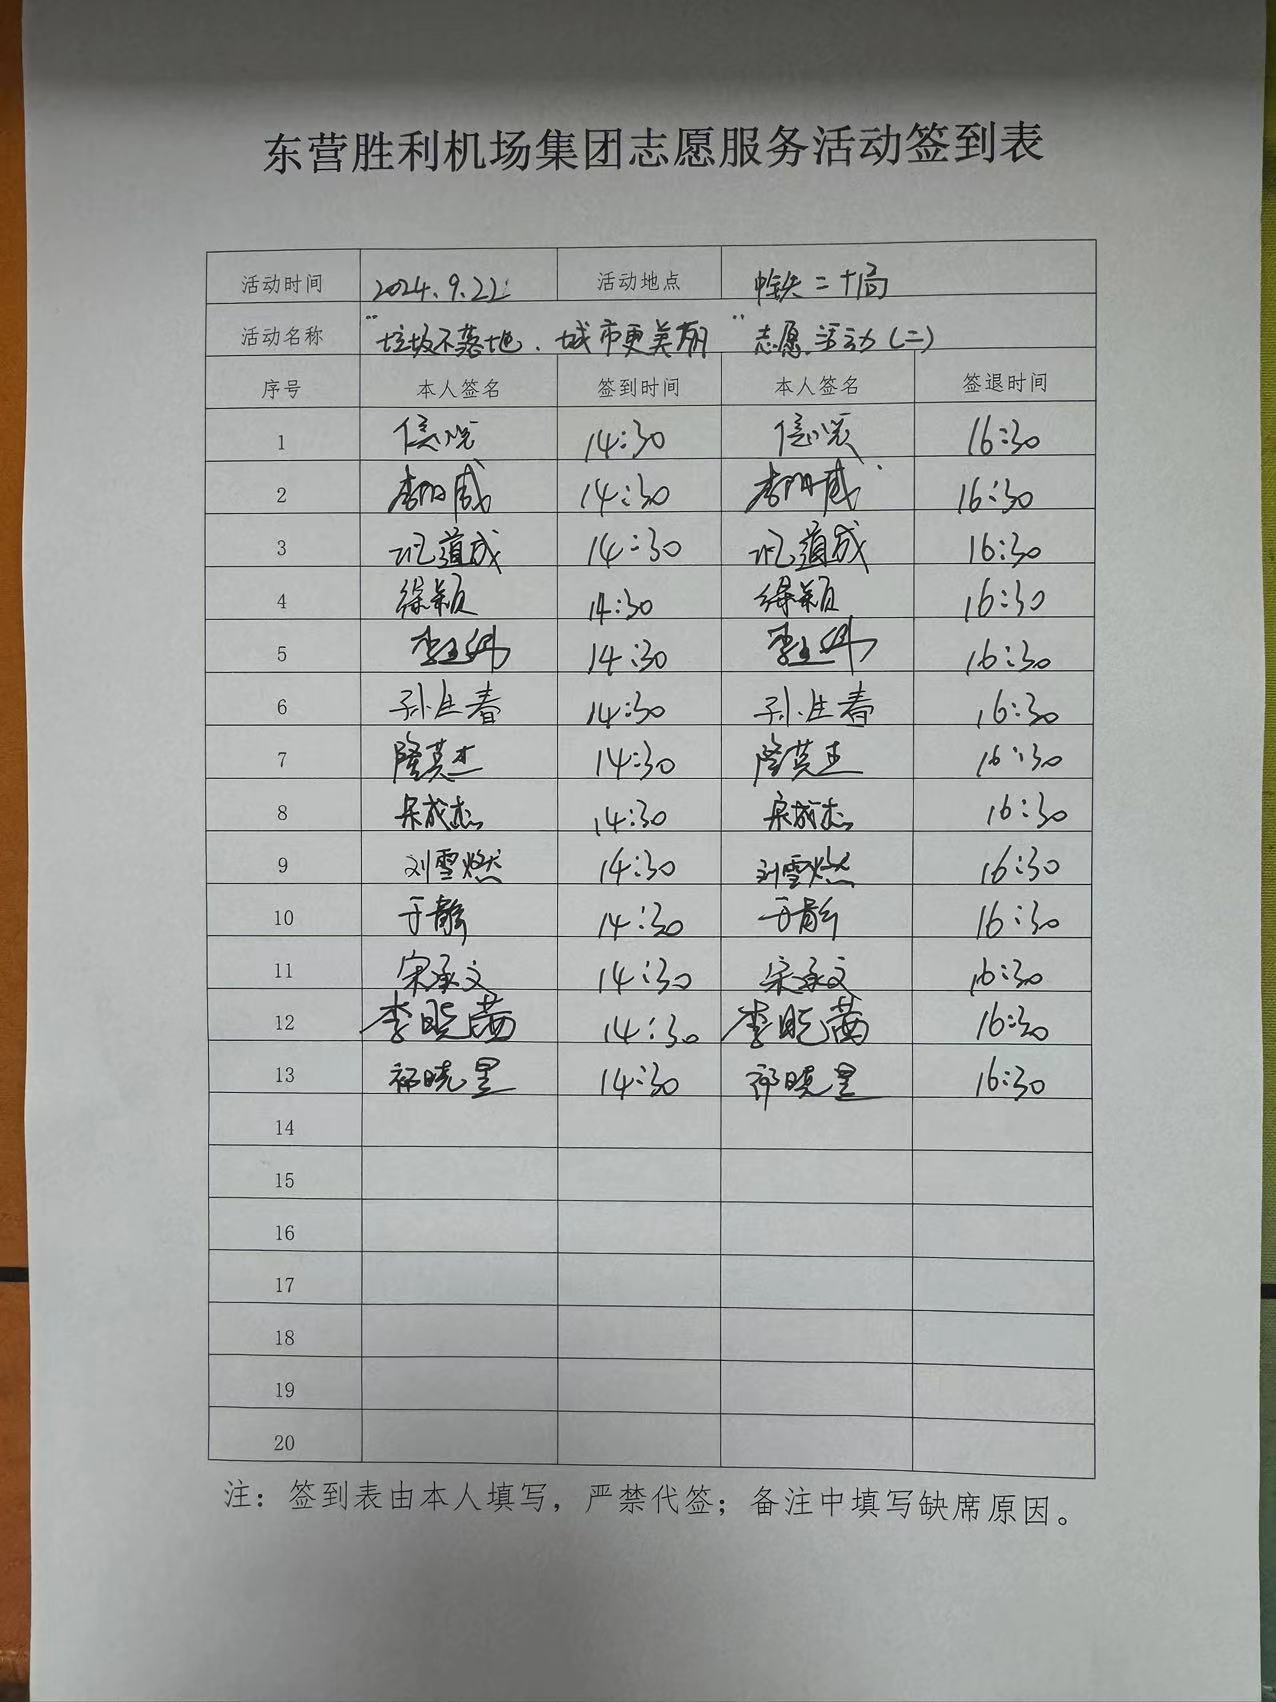 东营胜利机场集团志愿服务活动签到表
活动时间 2024.9.22 活动地点 中铁二十局
活动名称 "垃圾不落地、城市更美丽" 志愿活动(二)
序号 本人签名 签到时间 本人签名 签退时间
1 14:30 16:30
2 李阳威 14:30 李阳威 16:30
3 道成 14:30 道成 16:30
4 徐颖 14:30 徐颖 16:30
5 李 14:30 李 16:30
6 孙生春 14:30 孙生春 16:30
7 隆英杰 14:30 隆英杰 16:30
8 宋成杰 14:30 宋成杰 16:30
9 刘雪燃 14:30 刘雪燃 16:30
10 于静 14:30 于静 16:30
11 宋承文 14:30 宋承文 16:30
12 李晓茜 14:30 李晓茜 16:30
13 祁晓星 14:30 祁晓星 16:30
14
15
16
17
18
19
20
注：签到表由本人填写，严禁代签；备注中填写缺席原因。